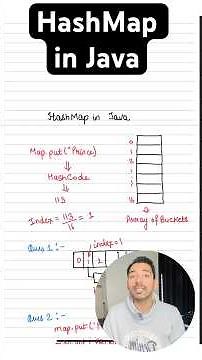 HashMap
in Java
HashMap in Java
Map.put("Prince)
HashCode
115
Index = 115/16 = 1
0
1
2
16
Array of Buckets
Ques 1 :-
index=1
0 1 2
Ques 2 :-
map.put("P